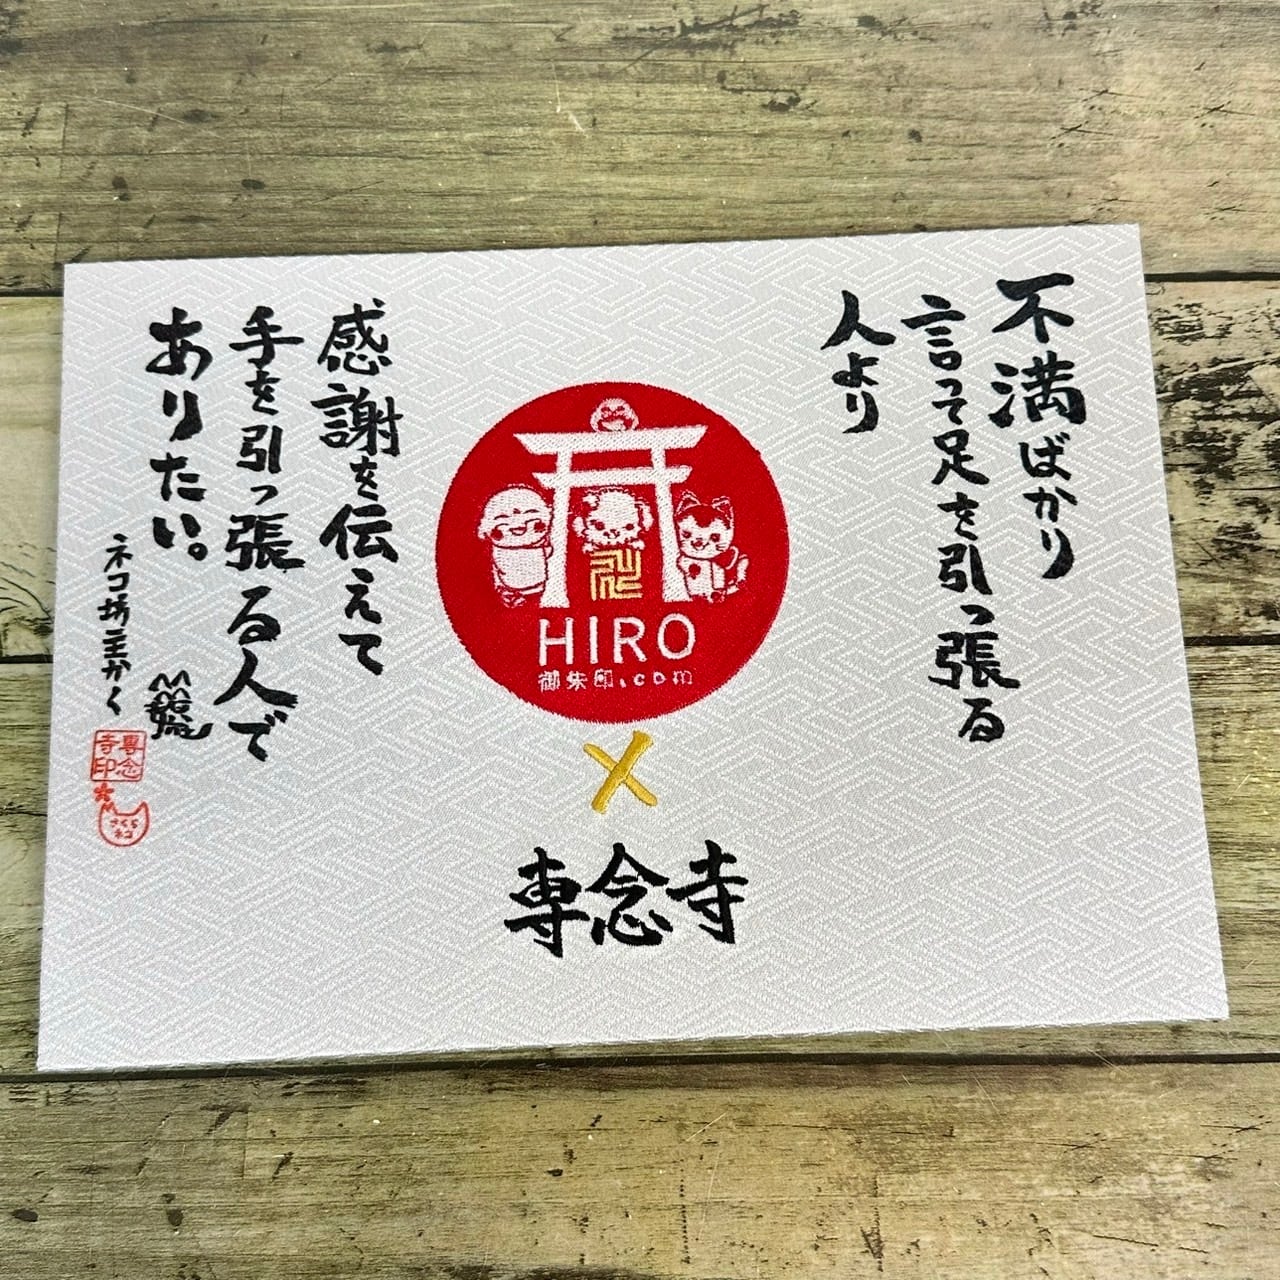 不満ばかり
言って足を引っ張る
人より
感謝を伝えて
手を引っ張る人で
ありたい。
ネコ坊主かく
HIRO
御朱印.com
×
専念寺
専念
寺印
さくら
ネコ